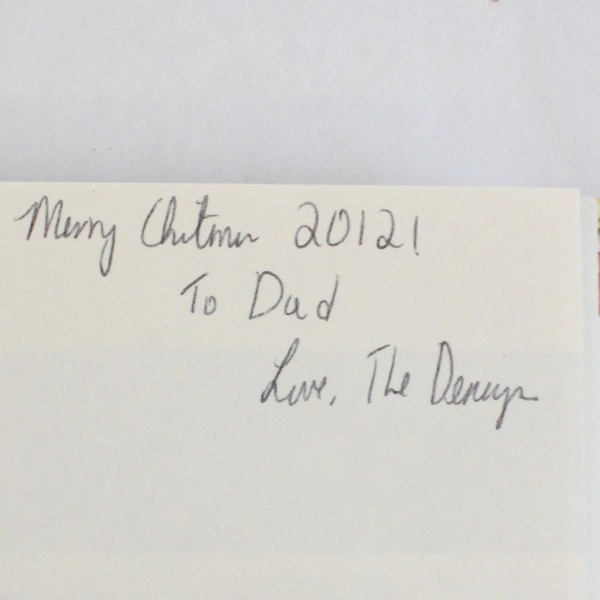 Merry Christmas 2012!
To Dad
Love, The